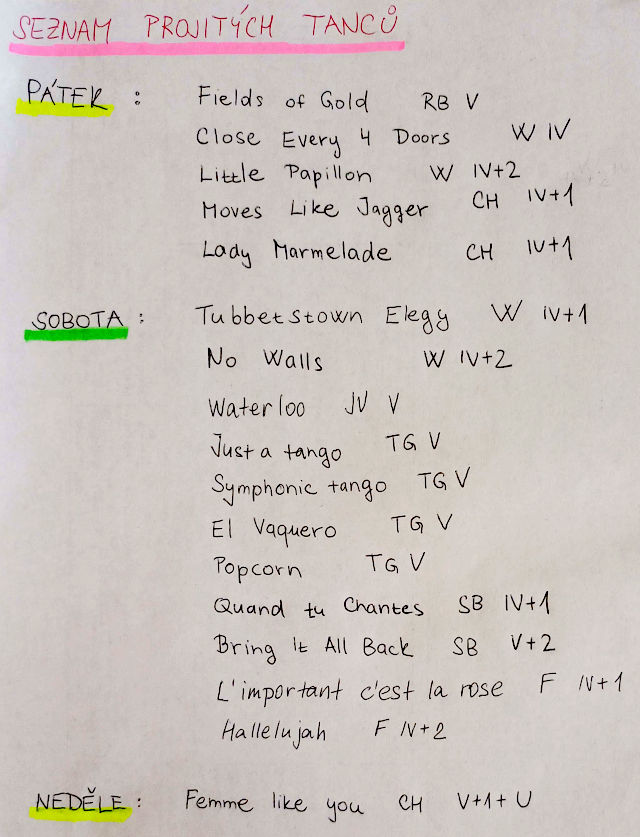 SEZNAM PROJITÝCH TANCŮ
PÁTEK : Fields of Gold RB V
Close Every 4 Doors W IV
Little Papillon W IV+2
Moves Like Jagger CH IV+1
Lady Marmelade CH IV+1
SOBOTA : Tubbetstown Elegy W IV+1
No Walls W IV+2
Waterloo JV V
Just a tango TG V
Symphonic tango TG V
El Vaquero TG V
Popcorn TG V
Quand tu Chantes SB IV+1
Bring It All Back SB V+2
L'important c'est la rose F IV+1
Hallelujah F IV+2
NEDĚLE : Femme like you CH V+1+U